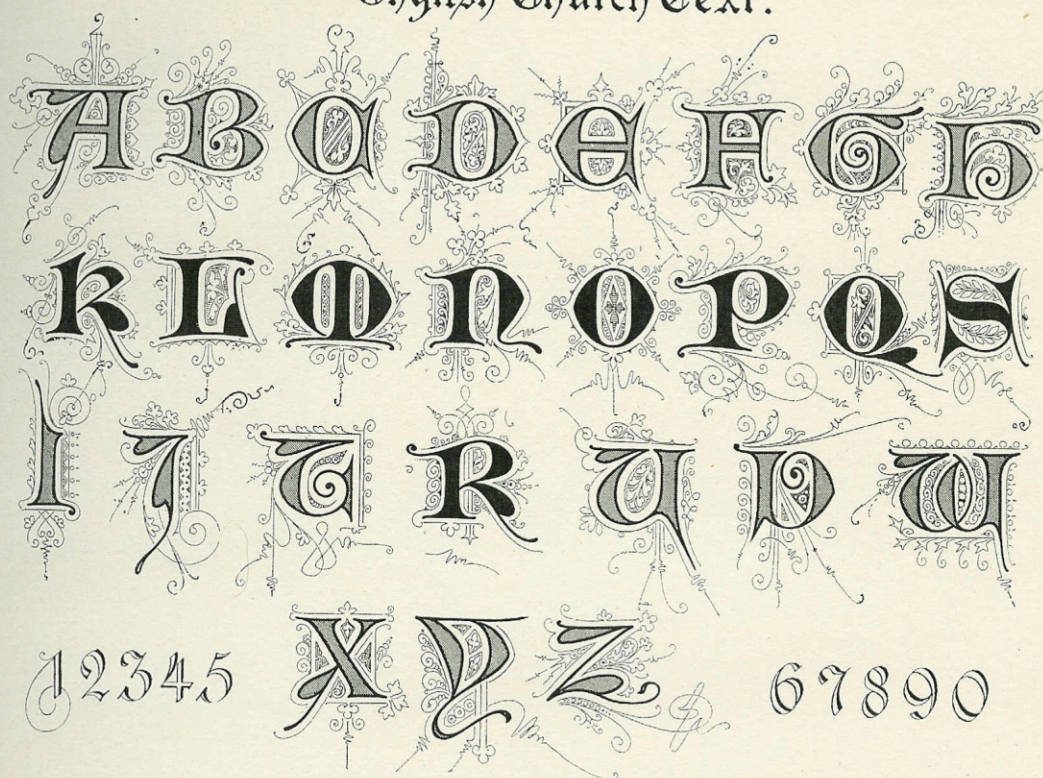 English Church Text.
A B C D E F G H
K L M N O P Q S
I J T R U V W
1 2 3 4 5 X Y Z & 6 7 8 9 0